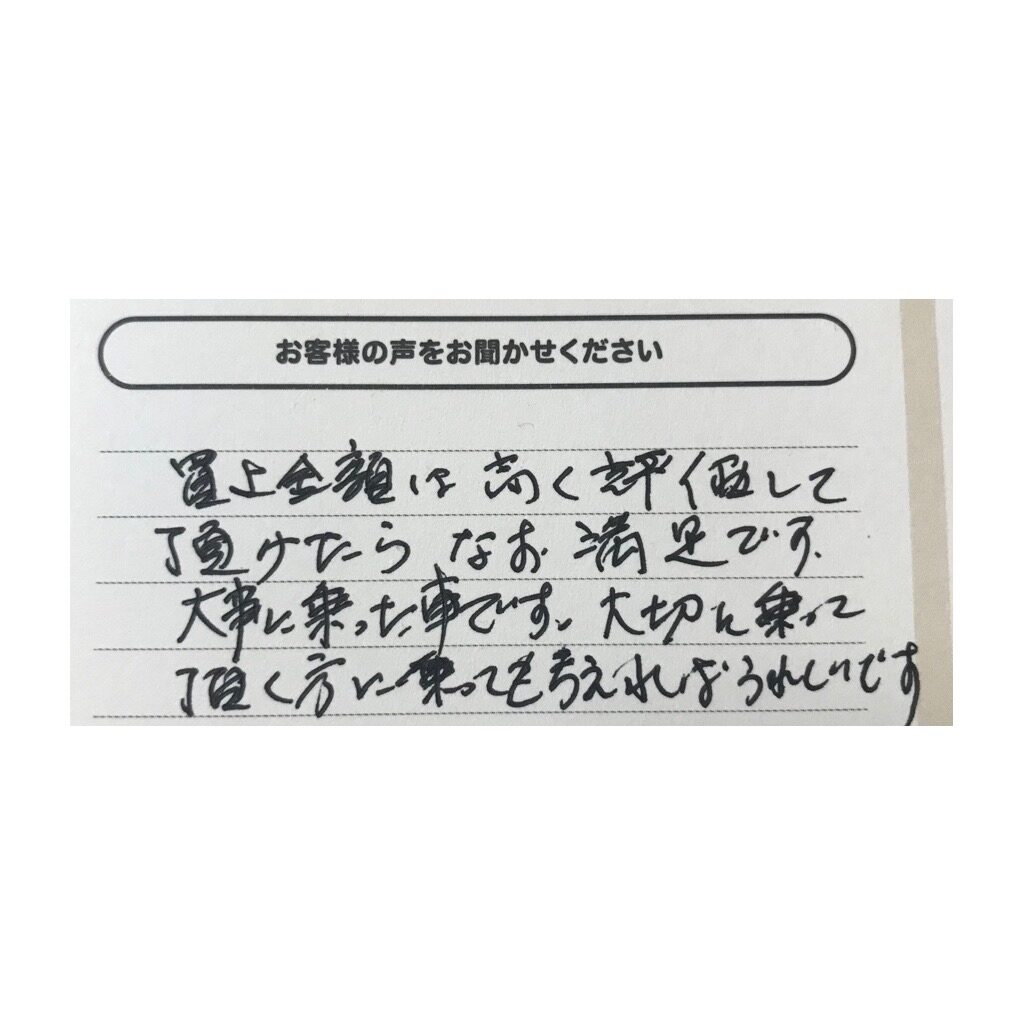 お客様の声をお聞かせください
買上金額は高く評価して
頂けたらなお満足です。
大事に乗った車です。大切に乗って
頂く方に乗っても考えればうれしいです